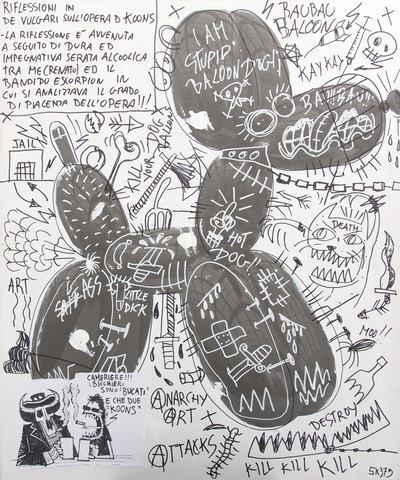 RIFLESSIONI IN
DE VULGARI SULL'OPERA D KOONS
-LA RIFLESSIONE E' AVVENUTA
A SEGUITO DI DURA ED
IMPEGNATIVA SERATA ALCOOLICA
TRA ME(RENATO) ED IL
BANDITO ESCORPION IN
CUI SI ANALIZZAVA IL GRADO
DI PIACENZA DELL'OPERA!!!
I AM
STUPID
BALOON DOG!!
BAUBAU
BALOON
KAYKAY
BA!! BAU!!
JAIL
KILL
YOUR DOG
BALLOON
HOT
DOG!!
DEATH
MOE!!
ART
ASS
LITTLE
DICK
CAMERIERE!!!
I BICCHIERI
SONO "BUCATI"
E CHE DUE
"KOONS"
ANARCHY
ART +
ATTACKS
DESTROY
KILL KILL KILL